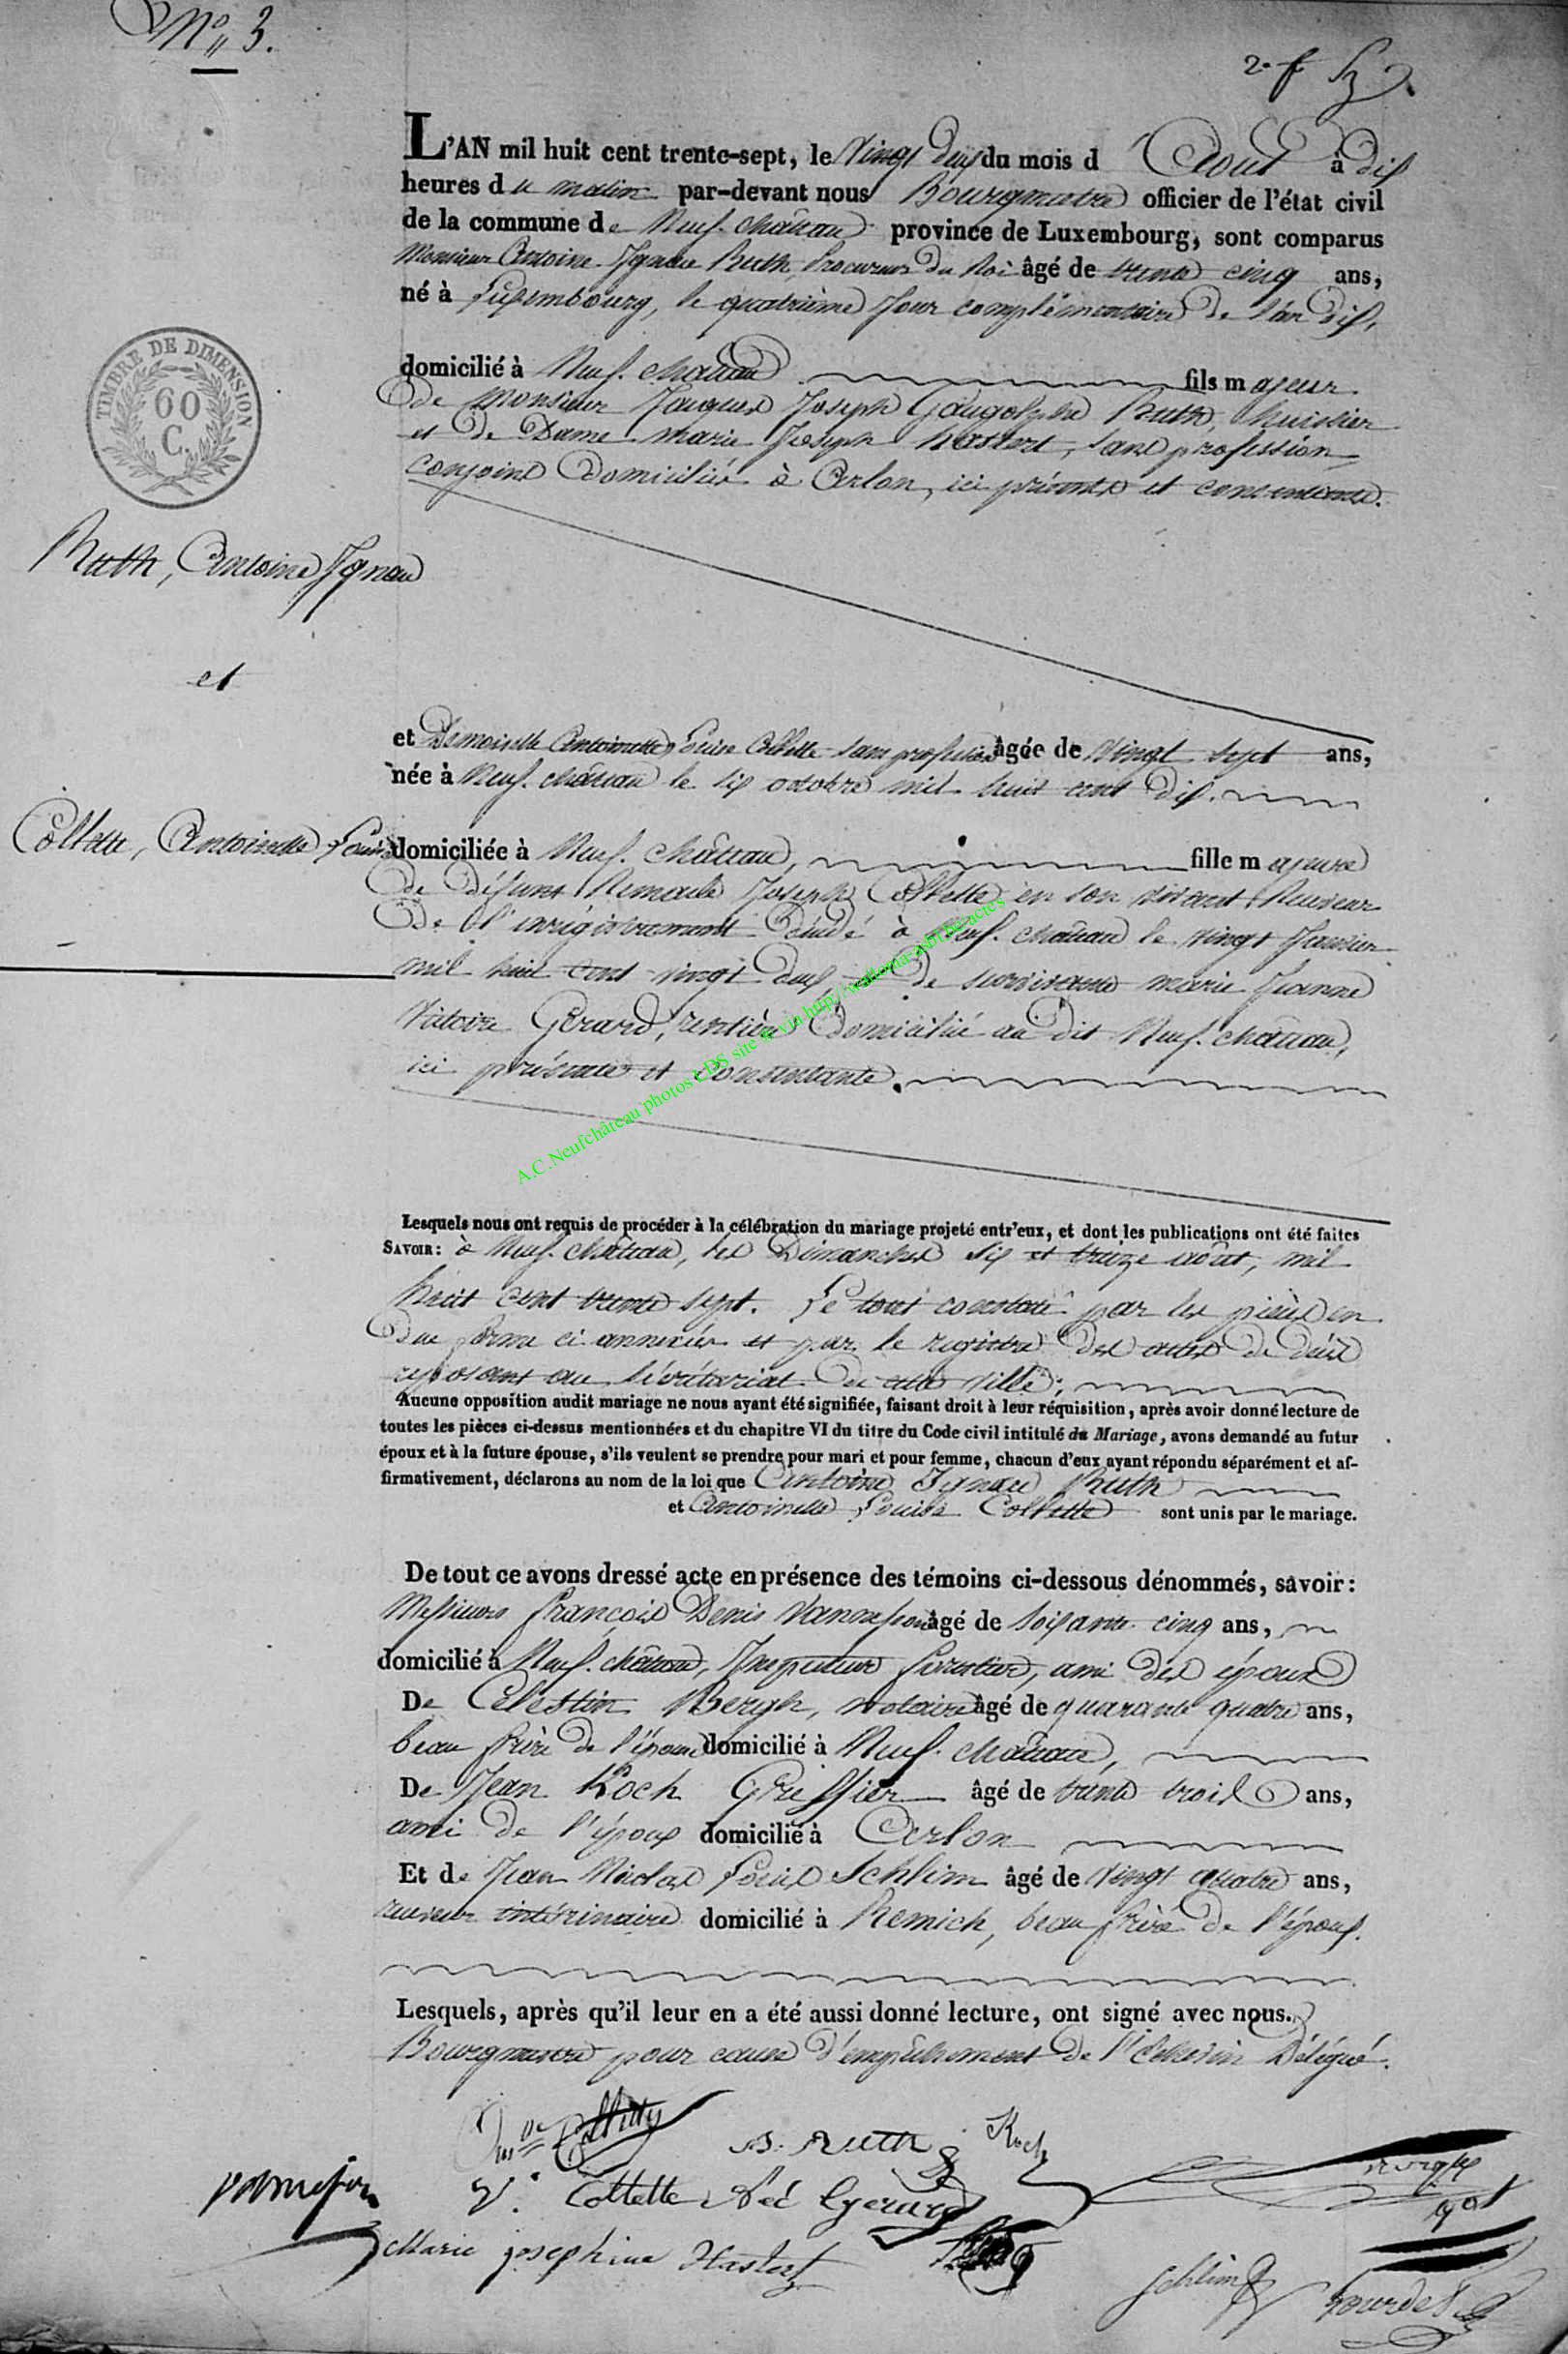 N° 3.
L'AN mil huit cent trente-sept, le Vingt deux du mois d'Aout à dix
heures du matin par-devant nous Bourgmestre officier de l'état civil
de la commune de Neuf-château province de Luxembourg, sont comparus
Monsieur Antoine Ignace Ruth, Procureur du Roi âgé de trente cinq ans,
né à Luxembourg, le quatrième Jour complémentaire de l'an dix,
domicilié à Neuf-château fils majeur
TIMBRE DE DIMENSION
60
C.
de Monsieur Jacques Joseph Gangolphe Ruth, huissier
et de Dame Marie Joseph Hastert, sans profession
conjoints domiciliés à Arlon, ici présents et consentants.
Ruth, Antoine Ignace
et
et Demoiselle Antoinette Louise Collette sans profession âgée de vingt sept ans,
née à Neuf-château le six octobre mil huit cent dix.
Collette, Antoinette Louise
domiciliée à Neuf-château, fille majeure
de défunt Remacle Joseph Collette en son vivant Receveur
de l'enrégistrement décédé à Neuf-château le vingt Janvier
mil huit cent vingt deux et de survivante marie Jeanne
Victoire Gérard, rentière domiciliée au dit Neuf-château,
ici présente et consentante.
A.C.Neufchâteau photos LDS site via http://wallonia-asbl.be/actes
Lesquels nous ont requis de procéder à la célébration du mariage projeté entr'eux, et dont les publications ont été faites
SAVOIR: à Neuf-château, les Dimanches six et treize août, mil
huit cent trente sept. Le tout constaté par les pièces en
due forme ci annexées et par le registre des actes de décès
reposant au sécrétariat de cette ville;
Aucune opposition audit mariage ne nous ayant été signifiée, faisant droit à leur réquisition, après avoir donné lecture de
toutes les pièces ci-dessus mentionnées et du chapitre VI du titre du Code civil intitulé du Mariage, avons demandé au futur
époux et à la future épouse, s'ils veulent se prendre pour mari et pour femme, chacun d'eux ayant répondu séparément et af-
firmativement, déclarons au nom de la loi que Antoine Ignace Ruth
et Antoinette Louise Collette sont unis par le mariage.
De tout ce avons dressé acte en présence des témoins ci-dessous dénommés, savoir:
Messieurs François Denis Vannesson âgé de soixante cinq ans,
domicilié à Neuf-château, Inspecteur forestier, ami des époux
De Célestin Bergh, notaire âgé de quarante quatre ans,
beau frère de l'épouse domicilié à Neuf-château,
De Jean Koch Greffier âgé de trente trois ans,
ami de l'époux domicilié à Arlon
Et de Jean Nicolas Louis Schlim âgé de vingt quatre ans,
receveur intérinaire domicilié à Remich, beau frère de l'époux.
Lesquels, après qu'il leur en a été aussi donné lecture, ont signé avec nous.
Bourgmestre pour cause d'empêchement de l'échevin délégué.
Collette
Ruth
Koch
Bergh
not
Vannesson
V. Collette née Gerard
Marie josephine Hastert
Schlim
Gourdet